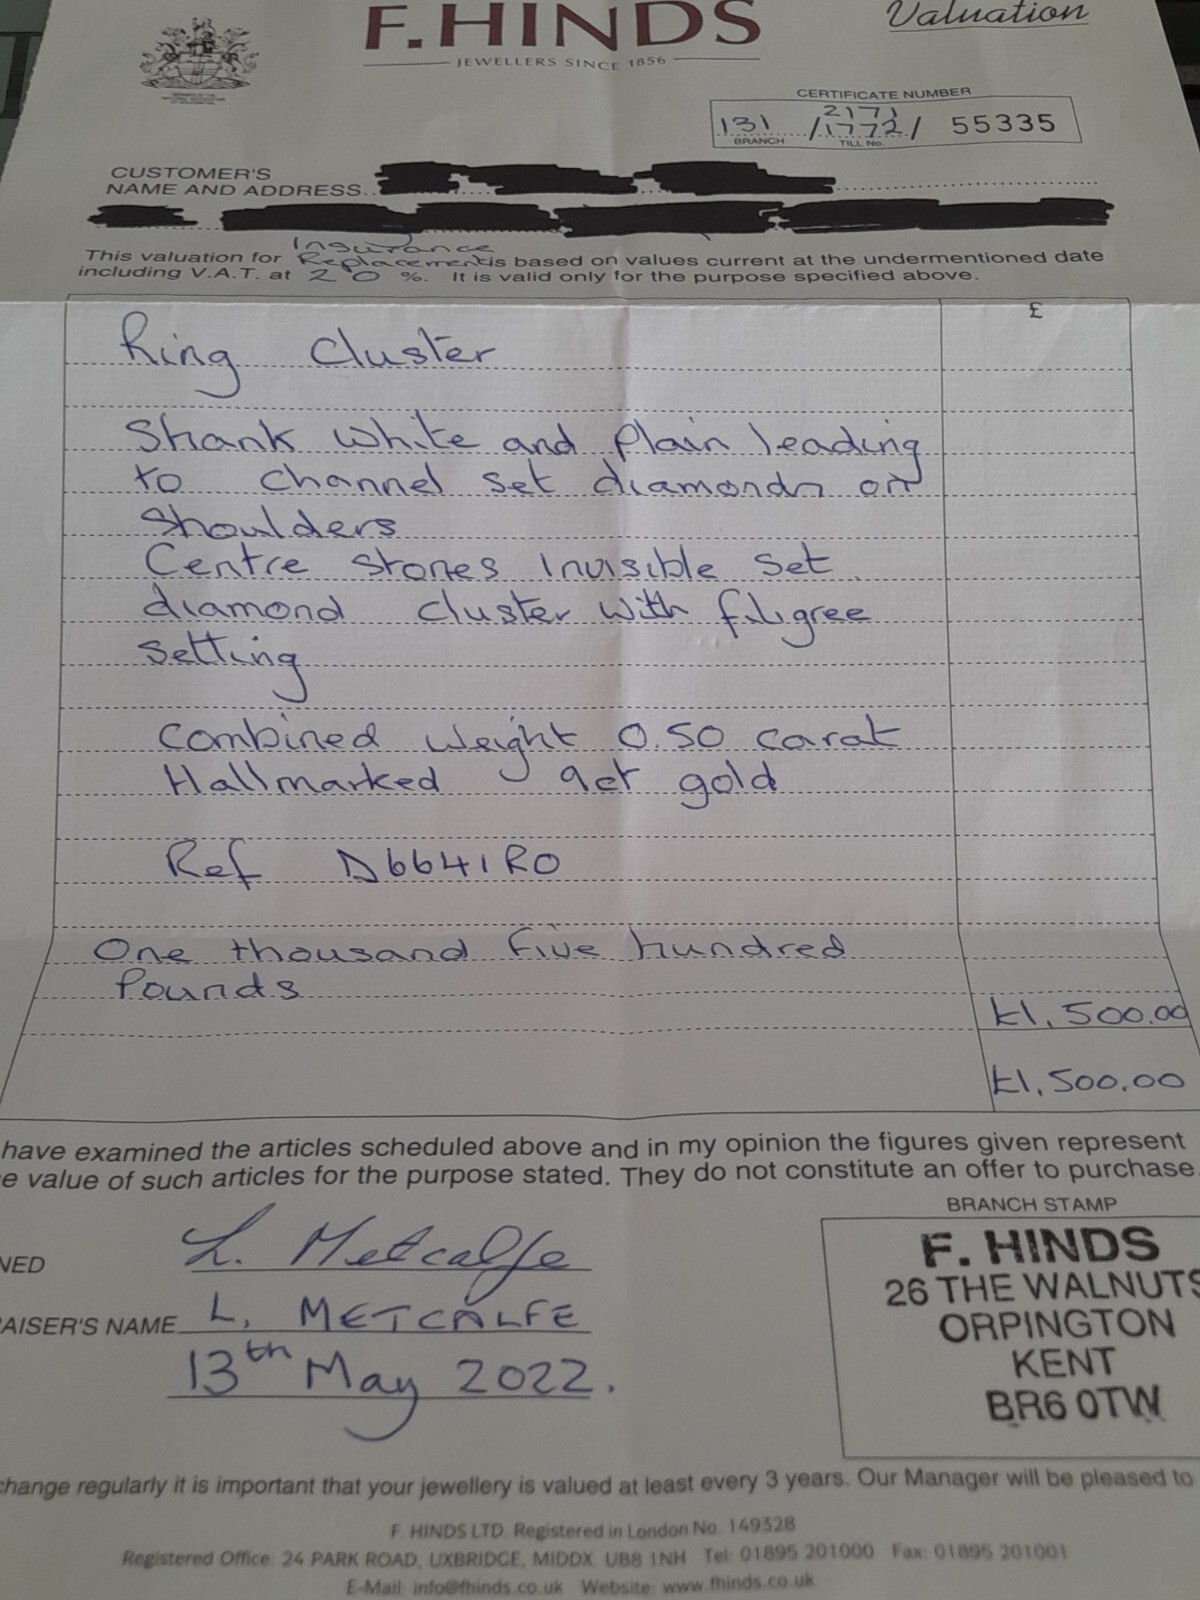 F.HINDS
JEWELLERS SINCE 1856
Valuation
CERTIFICATE NUMBER
2171
131 /1772/ 55335
BRANCH TILL No.
CUSTOMER'S
NAME AND ADDRESS
Insurance
This valuation for Replacement is based on values current at the undermentioned date
including V.A.T. at 20 %. It is valid only for the purpose specified above.
£
Ring Cluster
Shank white and plain leading
to channel set diamonds on
shoulders
Centre stones invisible set
diamond cluster with filigree
setting
Combined weight 0.50 carat
Hallmarked 9ct gold
Ref D6641RO
One thousand five hundred
Pounds
£1,500.00
£1,500.00
have examined the articles scheduled above and in my opinion the figures given represent
e value of such articles for the purpose stated. They do not constitute an offer to purchase.
BRANCH STAMP
NED L. Metcalfe
AISER'S NAME L. METCALFE
13th May 2022.
F. HINDS
26 THE WALNUTS
ORPINGTON
KENT
BR6 0TW
change regularly it is important that your jewellery is valued at least every 3 years. Our Manager will be pleased to
F. HINDS LTD. Registered in London No. 149328
Registered Office: 24 PARK ROAD, UXBRIDGE, MIDDX. UB8 1NH Tel: 01895 201000 Fax: 01895 201001
E-Mail: info@fhinds.co.uk Website: www.fhinds.co.uk